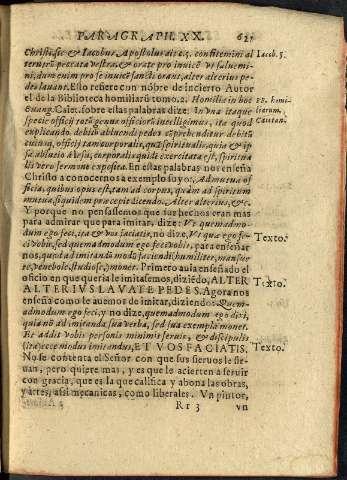 PARAGRAPH. XX. 62
Christi, sic & Iacobus Apostolus ait c. 5. confitemini al
terutrū peccata vestra, & orate pro invicē vt saluemi
ni; dum enim pro se invicē sancti orant, alter alterius pe-
des lauant. Esto refiere con nōbre de incierto Autor
el de la Biblioteca homiliarū tomo. 2. Homilia in hoc
Euāg. Caiet. sobre ellas palabras dize: In vna itaque
specie officij totū genus officiorū intelligimus, ita quod
explicando debitū abluendi pedes cōprehenditur debitū
cuiusq, officij tam corporalis, quā spiritualis, quia & ip
sa ablutio à Iesu, corporalis quidē exercitata est, spiritua
lis vero sermone exposita. En estas palabras nos enseña
Christo a conocernos a exemplo suyo. Ad mutua of
ficia, quibus opus est, tam ad corpus, quàm ad spiritum
mutua, siquidem præcepit dicendo. Alter alterius, &c.
Y porque no pensassemos que sus hechos eran mas
para admirar que para imitar, dize: Vt quemadmo-
dum ego feci, ita & vos faciatis, no dize, Vt quæ ego fe-
ci vobis, sed quemadmodum ego feci vobis, para enseñar
nos, quod ad imitandū modū faciendi, humiliter, mansue
te, beneuole, studiose, monet. Primero auia enseñado el
oficio en que queria le imitasemos, diziēdo, ALTER
ALTERIVS LAVATE PEDES. Agora nos
enseña como le auemos de imitar, diziendo: Quem-
admodum ego feci, y no dize, quemadmodum ego dixi,
quia nō ad imitanda sua verba, sed sua exempla monet.
Et addit vobis personis minimè seruis, & discipulis
(ita) ecce modus imitandus, ET VOS FACIATIS.
No se contenta el Señor con que sus sieruos le sir-
uan, pero quiere mas, y es que le acierten a seruir
con gracia, que es la que califica y abona las obras,
y artes, assi mecanicas, como liberales. Vn pintor,
Rr 3 vn
Iacob. 5.
Caietan.
Texto.
Texto.
Texto.